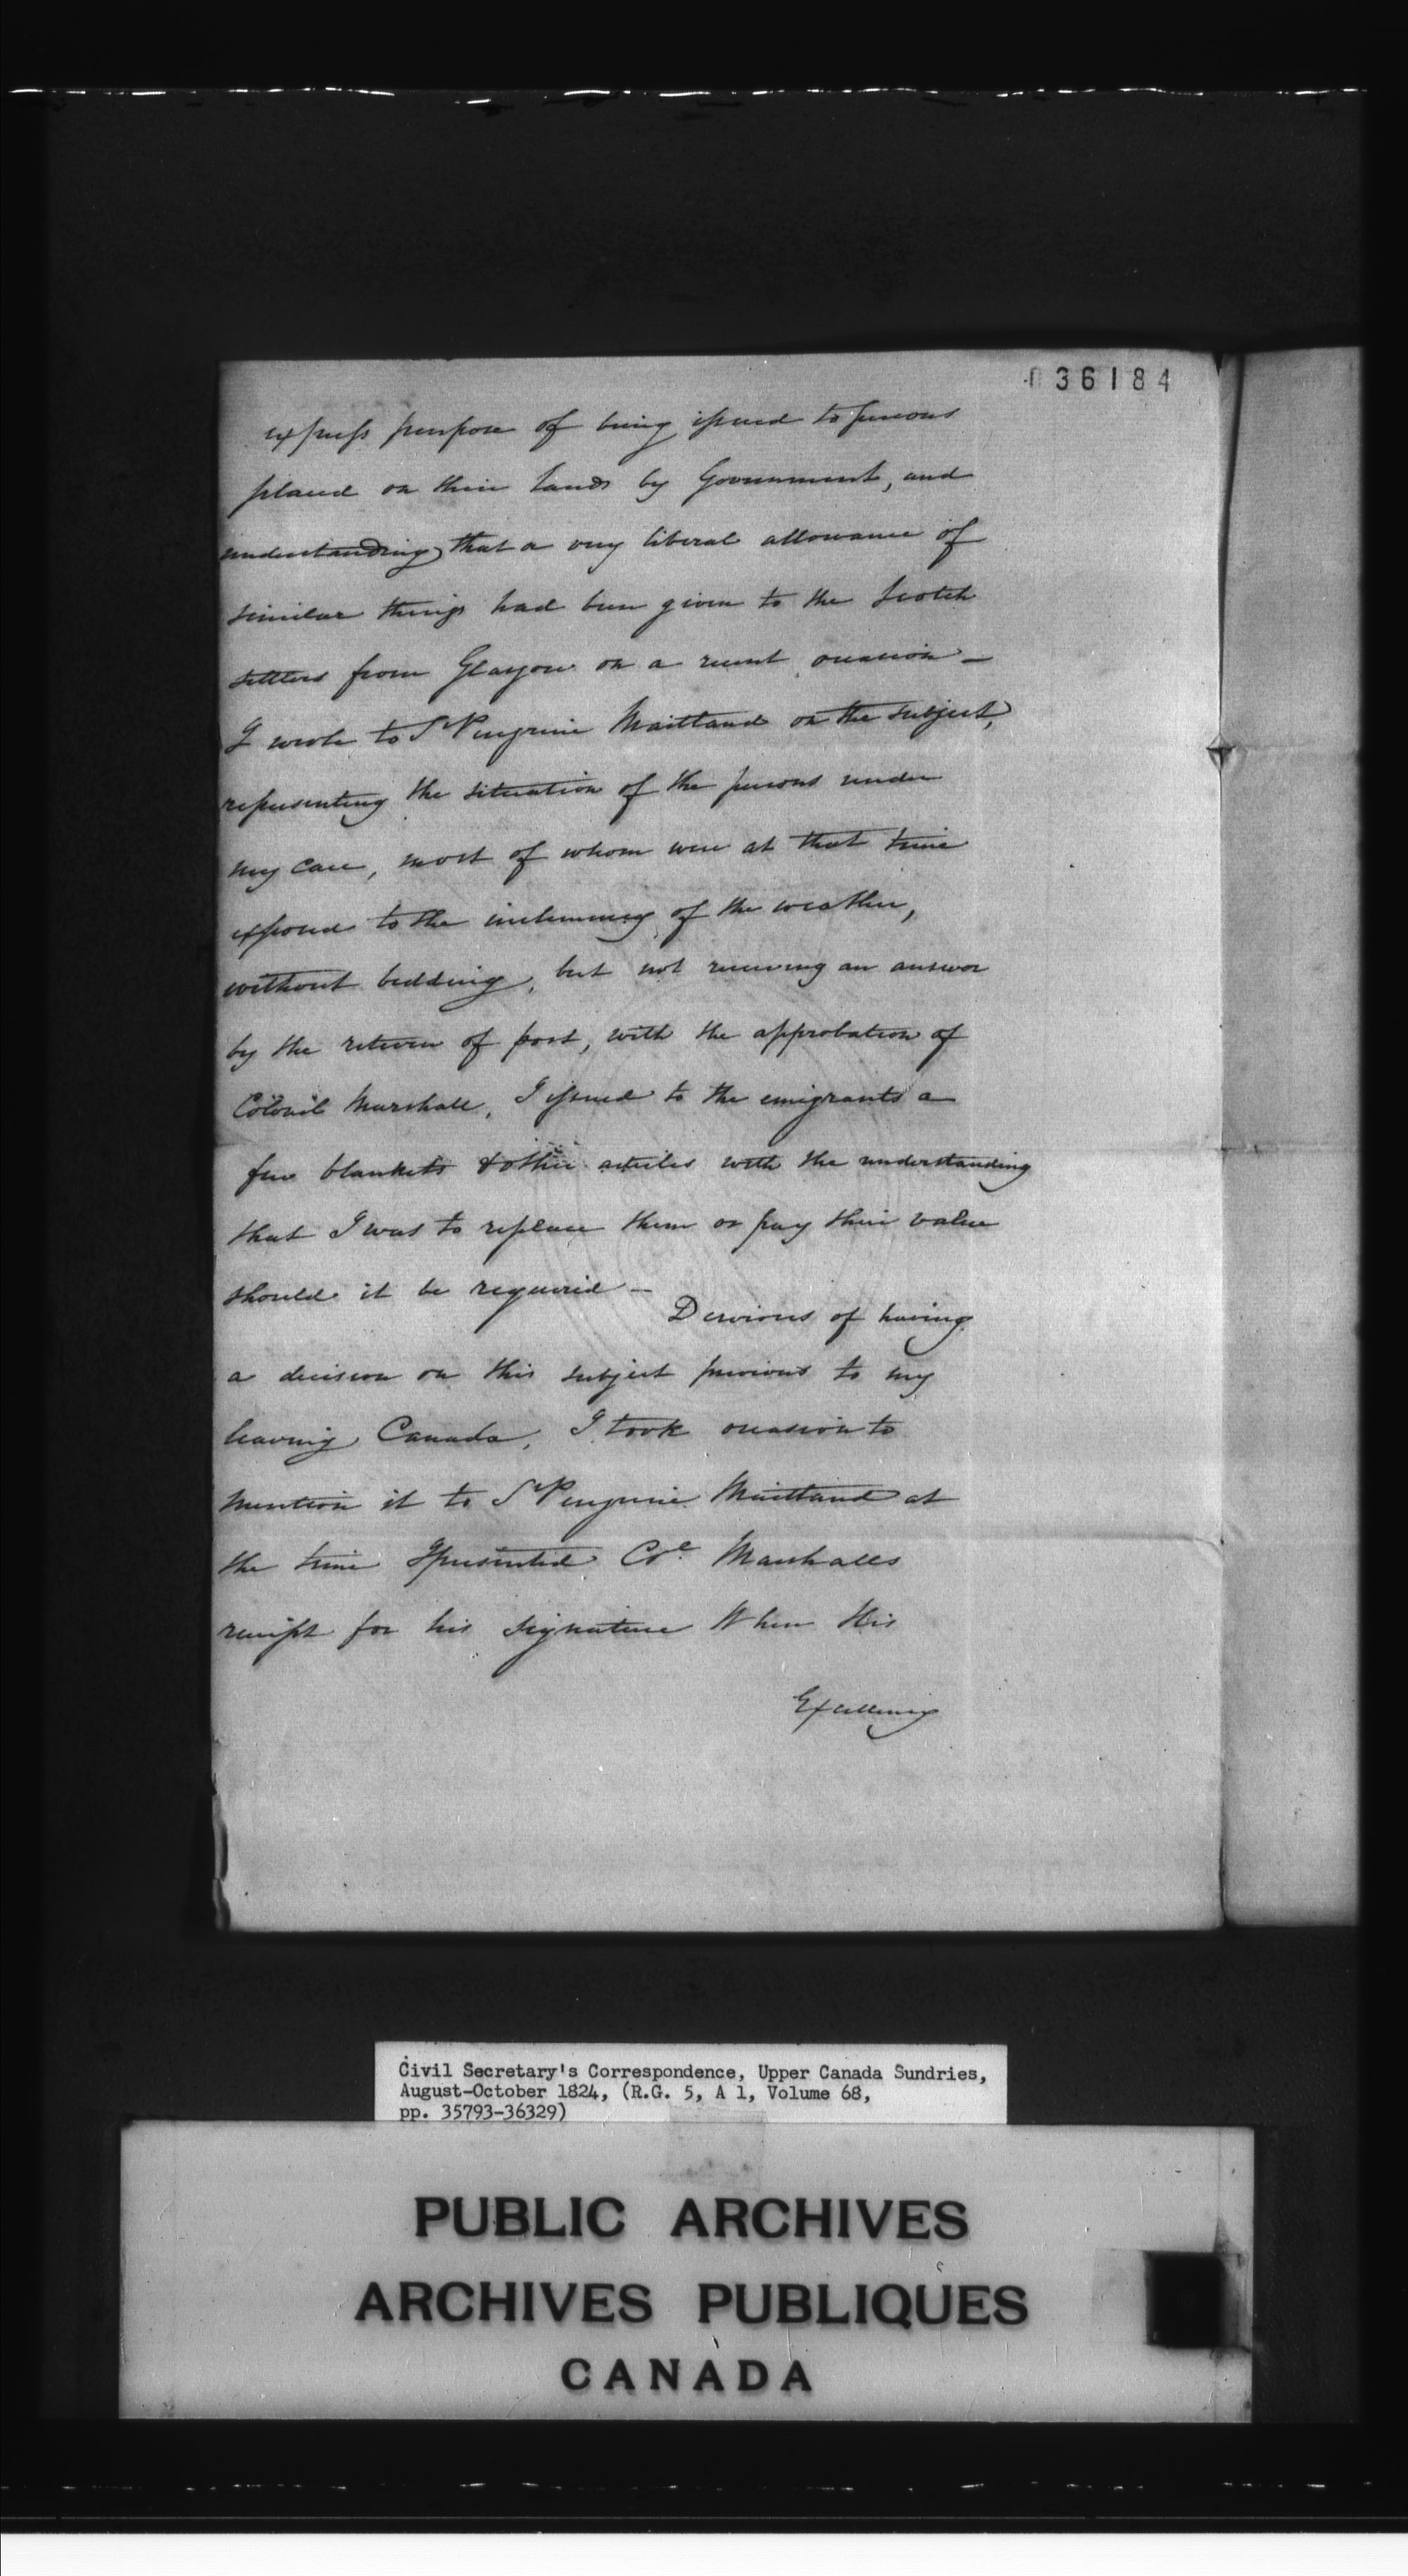 036184
express purpose of being issued to persons
placed on their lands by Government, and
understanding that a very liberal allowance of
similar things had been given to the Scotch
settlers from Glasgow on a recent occasion —
I wrote to Sr Peregrine Maitland on the subject,
representing the situation of the persons under
my care, most of whom were at that time
exposed to the inclemency of the weather,
without bedding, but not receiving an answer
by the return of post, with the approbation of
Colonel Marshall, I issued to the emigrants a
few blankets & other articles with the understanding
that I was to replace them or pay their value
should it be required —
Desirous of having
a decision on this subject previous to my
leaving Canada, I took occasion to
mention it to Sr Peregrine Maitland at
the time I presented Col. Marshalls
receipt for his signature When His
Excellency
Civil Secretary's Correspondence, Upper Canada Sundries,
August-October 1824, (R.G. 5, A 1, Volume 68,
pp. 35793-36329)
PUBLIC ARCHIVES
ARCHIVES PUBLIQUES
CANADA